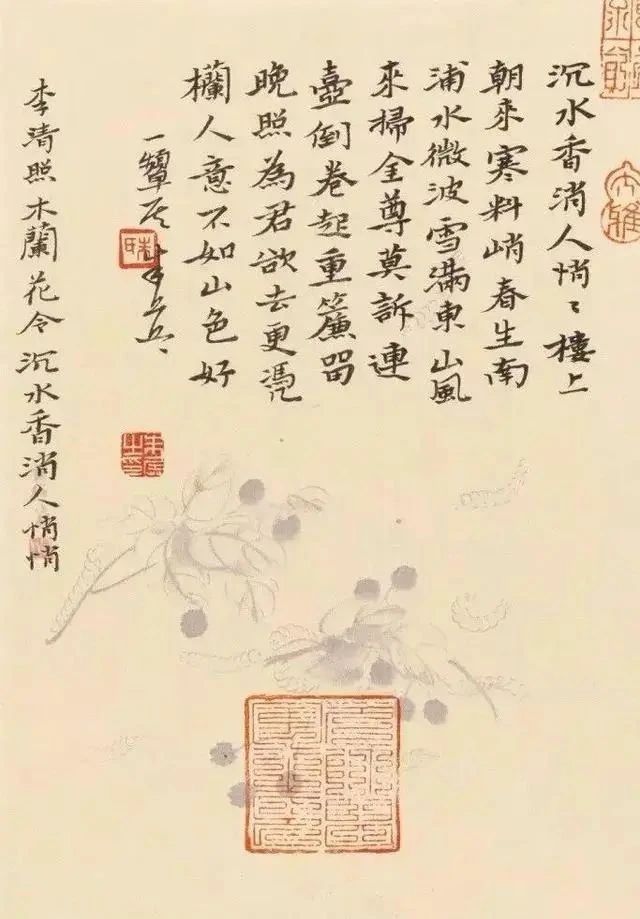 沉水香消人悄〻樓上
朝來寒料峭春生南
浦水微波雪滿東山風
來掃全尊莫訴連
壺倒卷起重簾畱
晚照為君欲去更凴
欄人意不如山色好
李清照木蘭花令沉水香消人悄悄